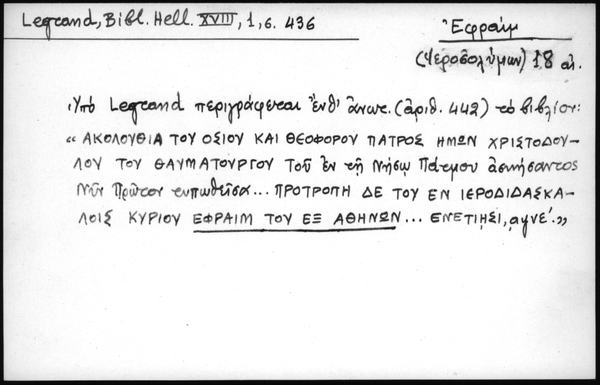 Legrand, Bibl. Hell. XVIII, 1, σ. 436
Ἐφραίμ
(Ἱεροσολύμων) 18 αἰ.
Ὑπό Legrand περιγράφεται ἔνθ' ἀνωτ. (ἀριθ. 442) τό βιβλίον:
“ ΑΚΟΛΟΥΘΙΑ ΤΟΥ ΟΣΙΟΥ ΚΑΙ ΘΕΟΦΟΡΟΥ ΠΑΤΡΟΣ ΗΜΩΝ ΧΡΙΣΤΟΔΟΥ-
ΛΟΥ ΤΟΥ ΘΑΥΜΑΤΟΥΡΓΟΥ Τοῦ ἐν τῇ Νήσῳ Πάτμου ἀσκήσαντος
Νῦν Πρῶτον τυπωθεῖσα... ΠΡΟΤΡΟΠΗ ΔΕ ΤΟΥ ΕΝ ΙΕΡΟΔΙΔΑΣΚΑ-
ΛΟΙΣ ΚΥΡΙΟΥ ΕΦΡΑΙΜ ΤΟΥ ΕΞ ΑΘΗΝΩΝ... ΕΝΕΤΙΗΣΙ, αψνέ.”